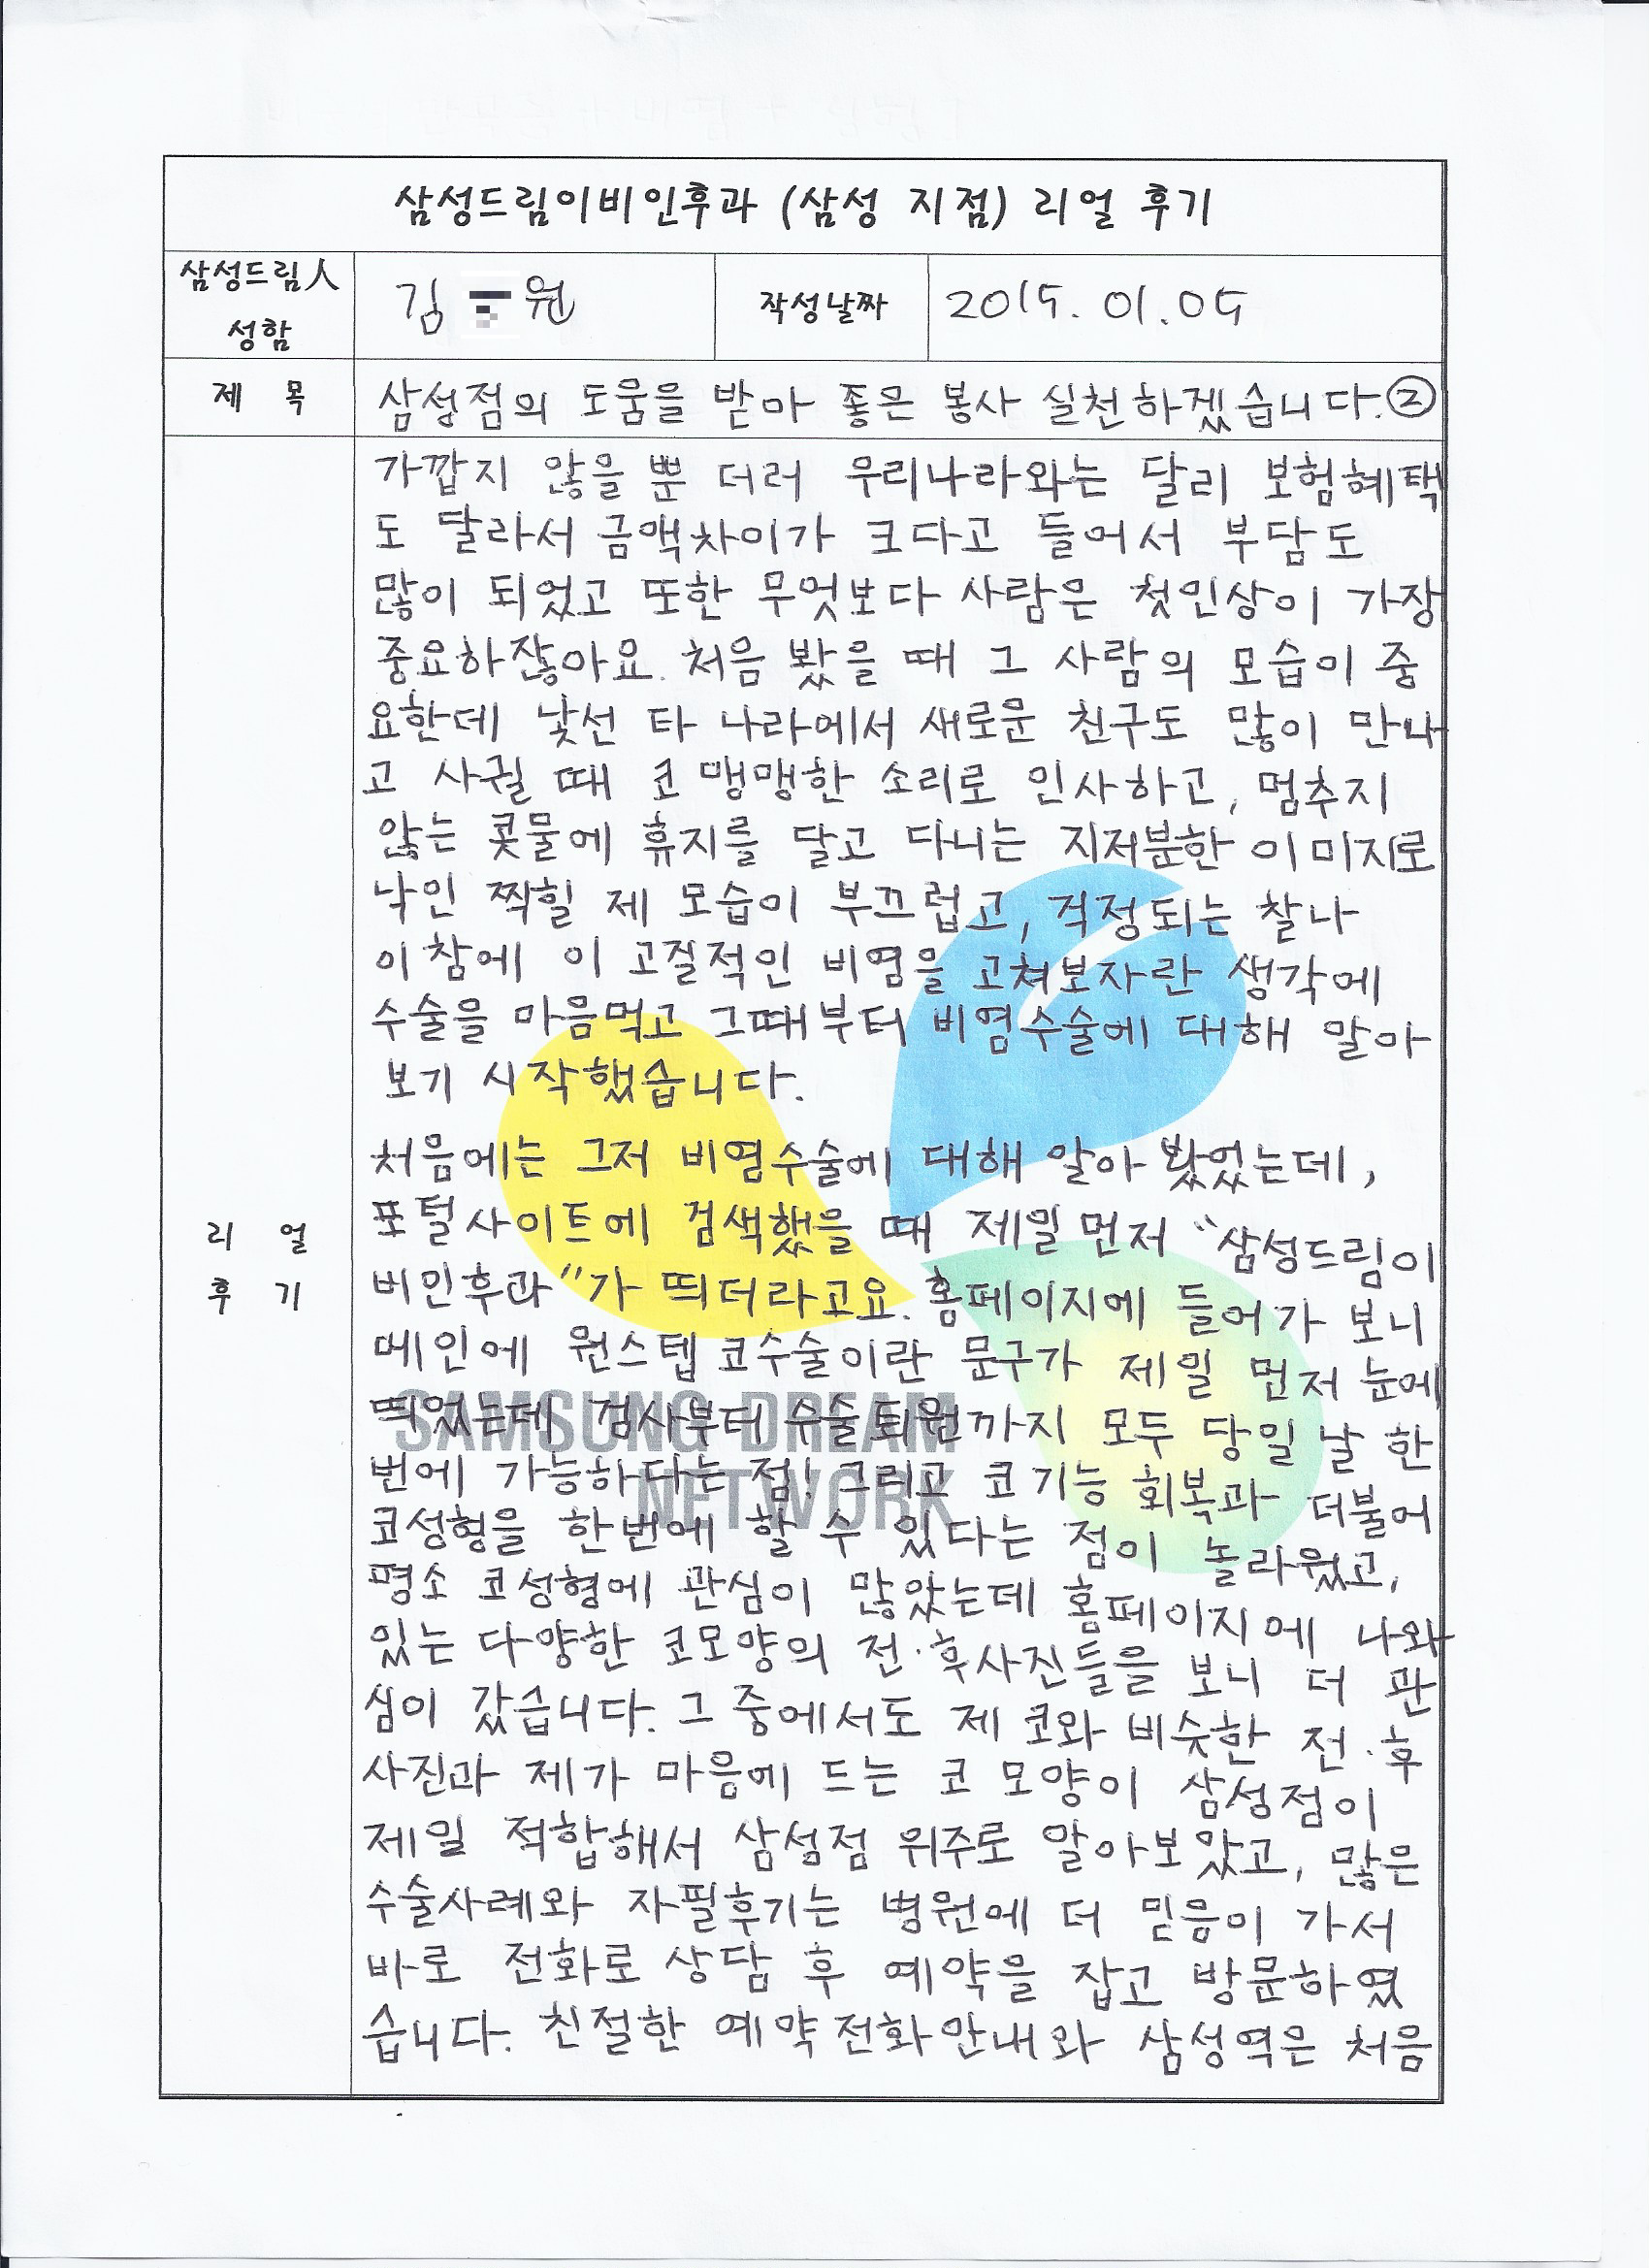 삼성드림이비인후과 (삼성 지점) 리얼 후기
삼성드림人
성함
김 원
작성날짜
2015. 01. 05
제 목
삼성점의 도움을 받아 좋은 봉사 실천하겠습니다.②
가깝지 않을 뿐 더러 우리나라와는 달리 보험혜택
도 달라서 금액차이가 크다고 들어서 부담도
많이 되었고 또한 무엇보다 사람은 첫인상이 가장
중요하잖아요. 처음 봤을 때 그 사람의 모습이 중
요한데 낯선 타 나라에서 새로운 친구도 많이 만나
고 사귈 때 코 맹맹한 소리로 인사하고, 멈추지
않는 콧물에 휴지를 달고 다니는 지저분한 이미지로
낙인 찍힐 제 모습이 부끄럽고, 걱정되는 찰나
이참에 이 고질적인 비염을 고쳐보자란 생각에
수술을 마음먹고 그때부터 비염수술에 대해 알아
보기 시작했습니다.
처음에는 그저 비염수술에 대해 알아 봤었는데,
포털사이트에 검색했을 때 제일 먼저 "삼성드림이
비인후과"가 띄더라고요. 홈페이지에 들어가 보니
메인에 원스텝 코수술이란 문구가 제일 먼저 눈에
띄었는데 검사부터 수술퇴원까지 모두 당일 날 한
번에 가능하다는 점! 그리고 코 기능 회복과 더불어
코성형을 한번에 할 수 있다는 점이 놀라웠고,
평소 코성형에 관심이 많았는데 홈페이지에 나와
있는 다양한 코모양의 전·후사진들을 보니 더 관
심이 갔습니다. 그 중에서도 제 코와 비슷한 전·후
사진과 제가 마음에 드는 코 모양이 삼성점이
제일 적합해서 삼성점 위주로 알아보았고, 많은
수술사례와 자필후기는 병원에 더 믿음이 가서
바로 전화로 상담 후 예약을 잡고 방문하였
습니다. 친절한 예약전화안내와 삼성역은 처음
리 얼
후 기
SAMSUNG DREAM
NETWORK